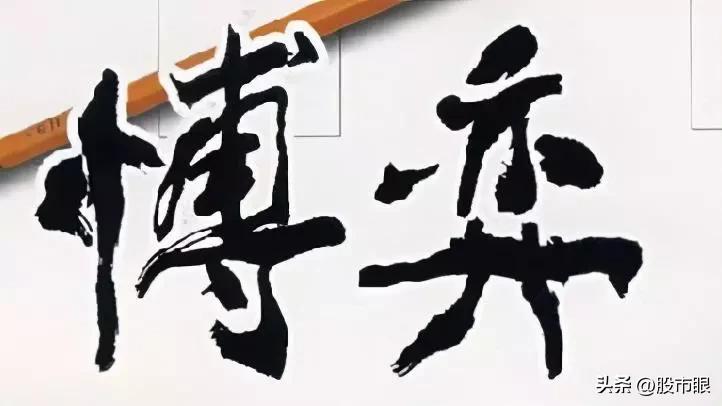 博弈
头条 @股市眼